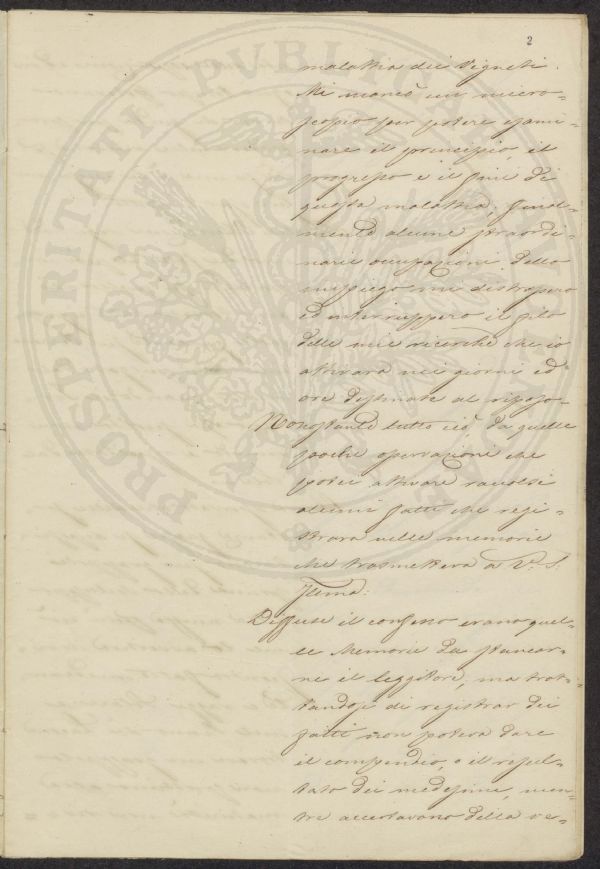 2
malattia dei vigneti.
Mi mancò un micro=
scopio per potere esami=
nare il principio, il
progresso e il fine di
questa malattia; final=
mente alcune straordi=
narie occupazioni dello
impiego mi distrassero
ed interruppero il filo
delle mie ricerche che io
attivava nei giorni ed
ore destinate al riposo.
Nonostante tutto ciò da quelle
poche osservazioni che
potei attivare raccolsi
alcuni fatti che regi=
strava nelle memorie
che trasmetteva a V. S.
Illma:
Diffuse il confesso erano quel=
le Memorie da stancar=
ne il leggitore, ma trat=
tandosi di registrar dei
fatti non poteva dare
il compendio, o il resul=
tato dei medesimi, men=
tre accertavano della ve=
PROSPERITATI PUBLICAE